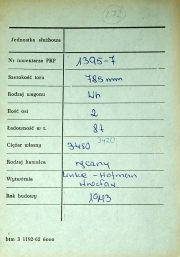 (272)
Jednostka służbowa
Nr inwentarza PKP 1395-7
Szerokość toru 785 mm
Rodzaj wagonu Wh
Ilość osi 2
Ładowność w t. 8t
Ciężar własny 3480 3420
Rodzaj hamulca ręczny
Wytwórnia Linke-Hofman Wrocław
Rok budowy 1943
btm 3 1192-62 6000